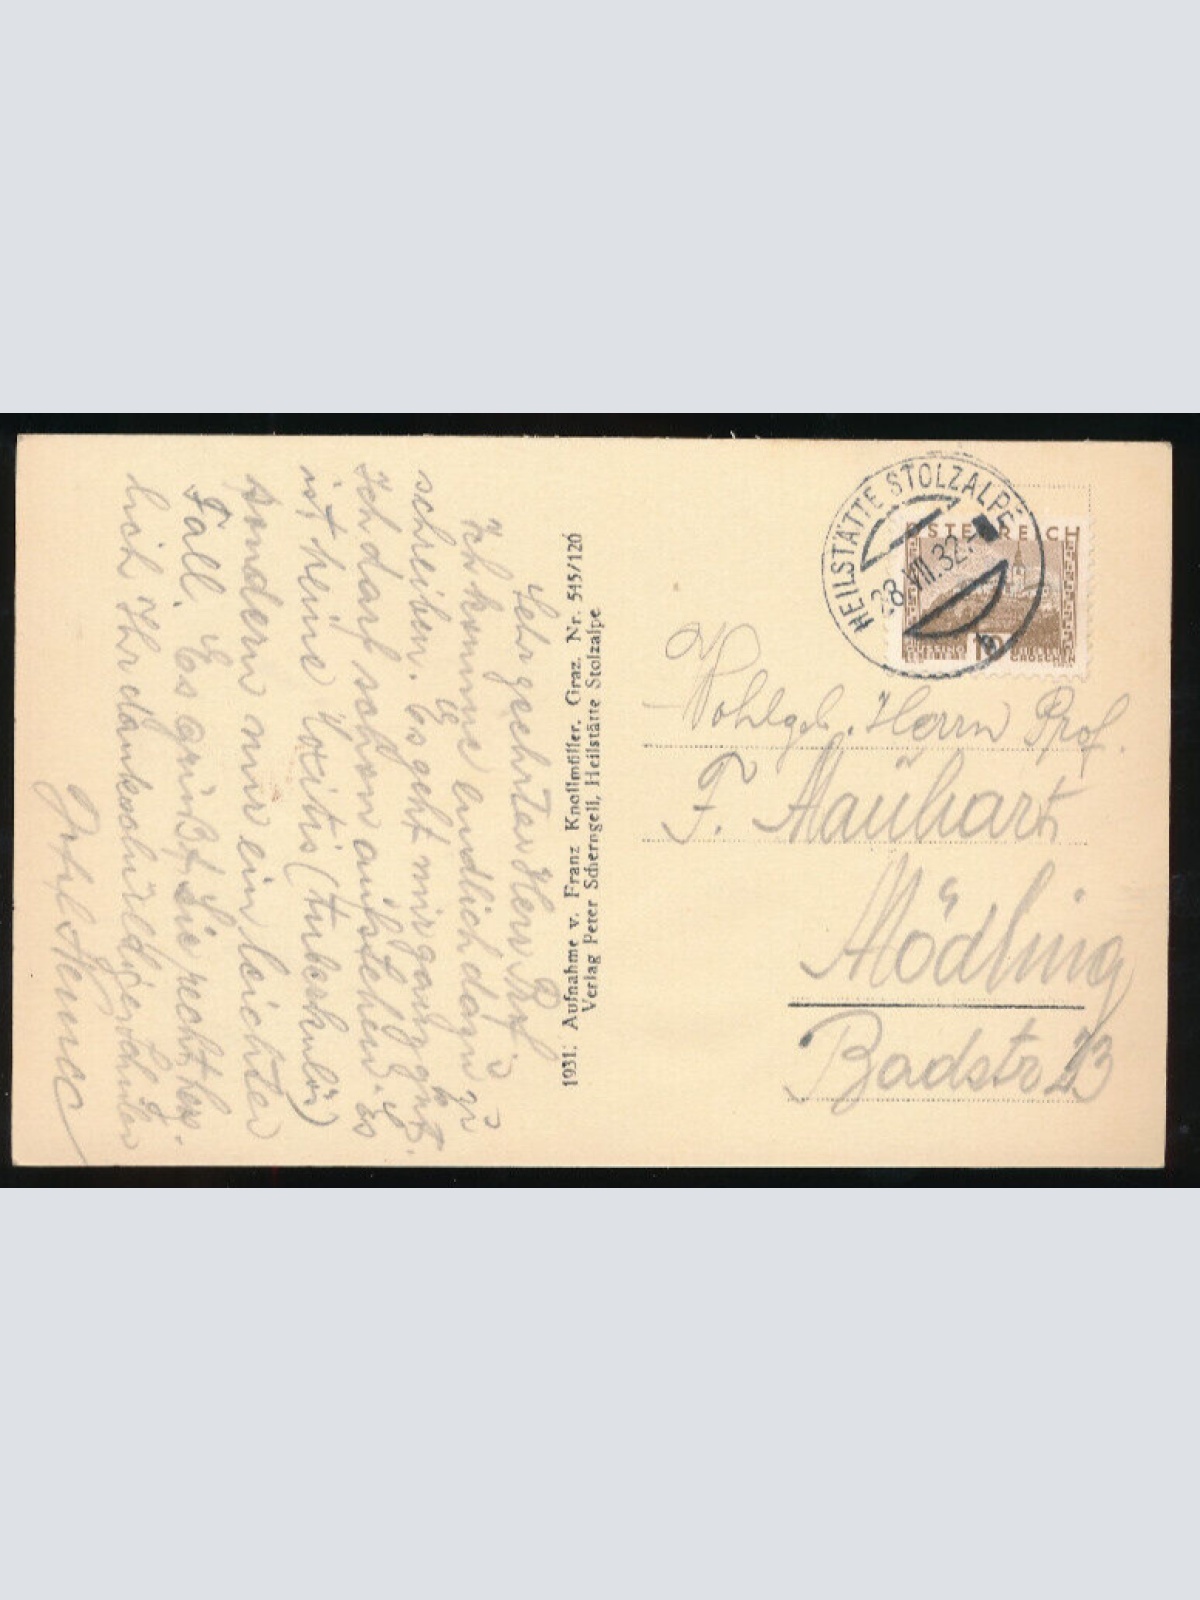 Sehr geehrter Herr Prof.
Ich komme endlich dazu zu
schreiben. Es geht mir ganz gut.
Ich darf schon aufstehen. Es
ist keine Koxitis (tuberkulös)
sondern nur ein leichter
Fall. Es grüßt Sie recht herz-
lich Ihr dankschuldigster Schüler
1931. Aufnahme v. Franz Knollmüller, Graz. Nr. 515/120
Verlag Peter Scherngell, Heilstätte Stolzalpe
HEILSTÄTTE STOLZALPE
28.VII.32
ÖSTERREICH
10
GROSCHEN
Wohlgeb. Herrn Prof.
F. Mauhart
Mödling
Badstr 23